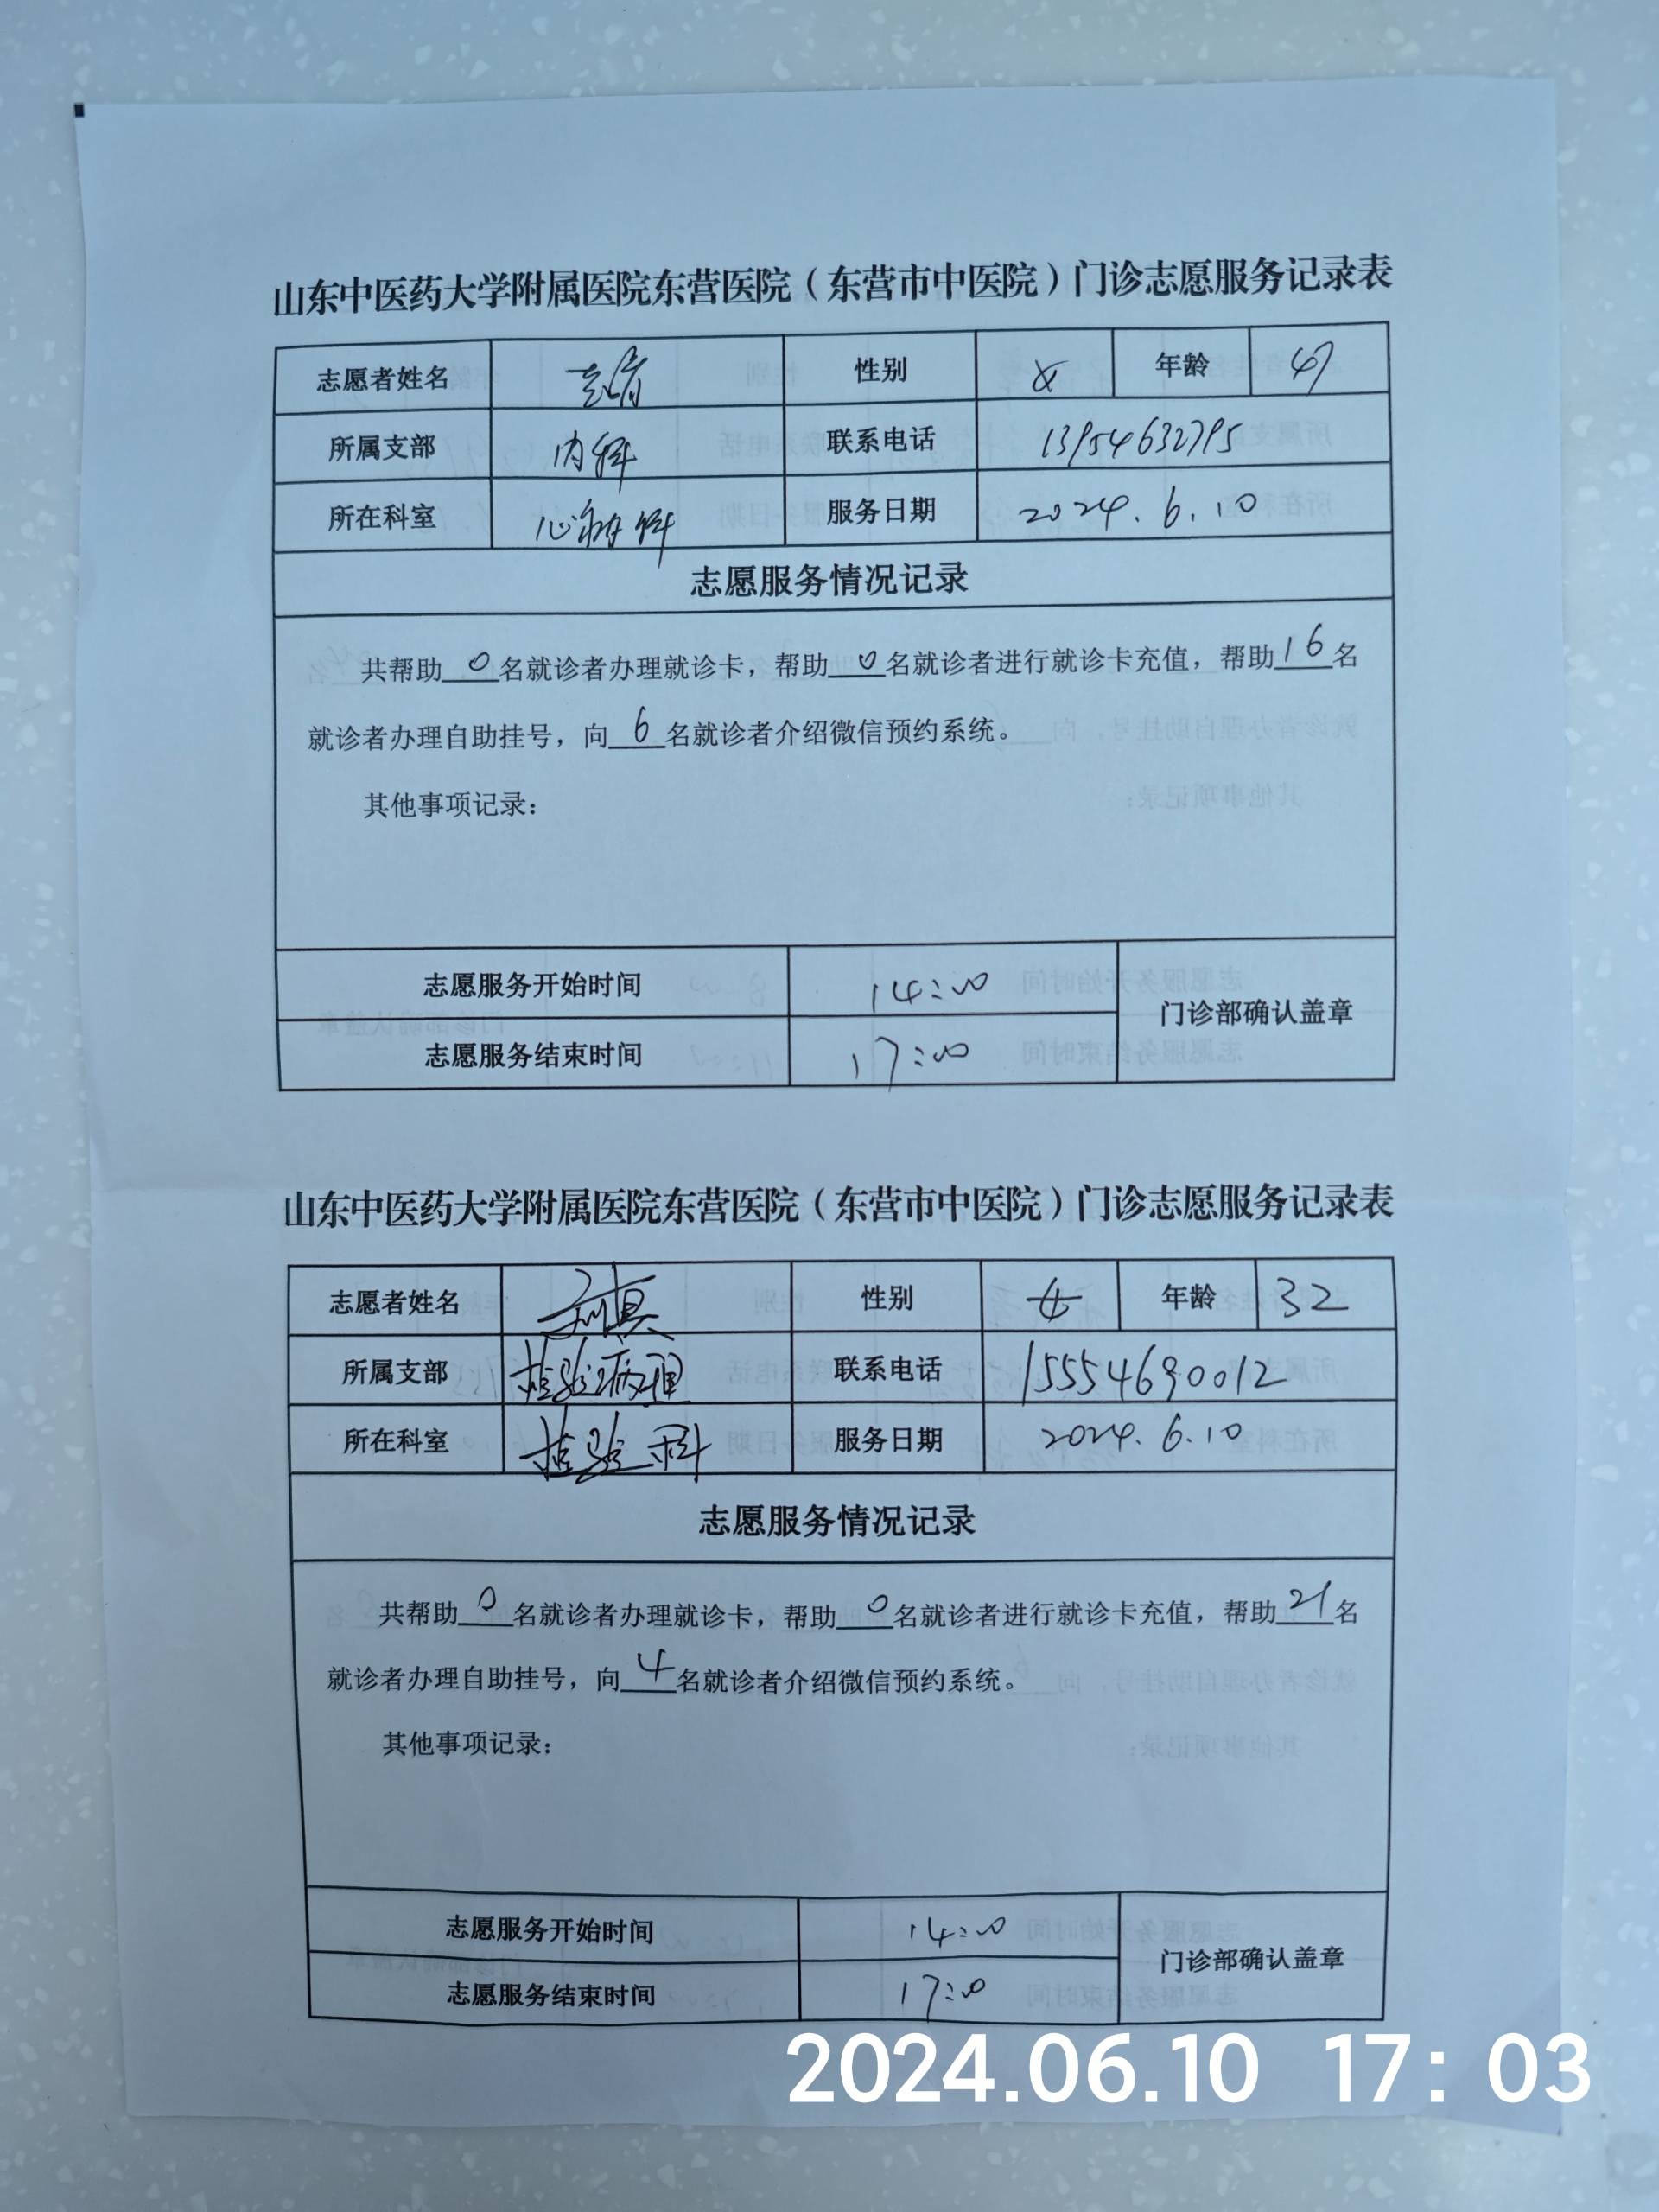 山东中医药大学附属医院东营医院（东营市中医院）门诊志愿服务记录表
志愿者姓名 性别 女 年龄 47
所属支部 内科 联系电话 13954632795
所在科室 心病科 服务日期 2024.6.10
志愿服务情况记录
共帮助0名就诊者办理就诊卡，帮助0名就诊者进行就诊卡充值，帮助16名
就诊者办理自助挂号，向6名就诊者介绍微信预约系统。
其他事项记录：
志愿服务开始时间 14:00
门诊部确认盖章
志愿服务结束时间 17:00
山东中医药大学附属医院东营医院（东营市中医院）门诊志愿服务记录表
志愿者姓名 性别 女 年龄 32
所属支部 检验病理 联系电话 15554690012
所在科室 检验科 服务日期 2024.6.10
志愿服务情况记录
共帮助0名就诊者办理就诊卡，帮助0名就诊者进行就诊卡充值，帮助21名
就诊者办理自助挂号，向4名就诊者介绍微信预约系统。
其他事项记录：
志愿服务开始时间 14:00
门诊部确认盖章
志愿服务结束时间 17:00
2024.06.10 17:03